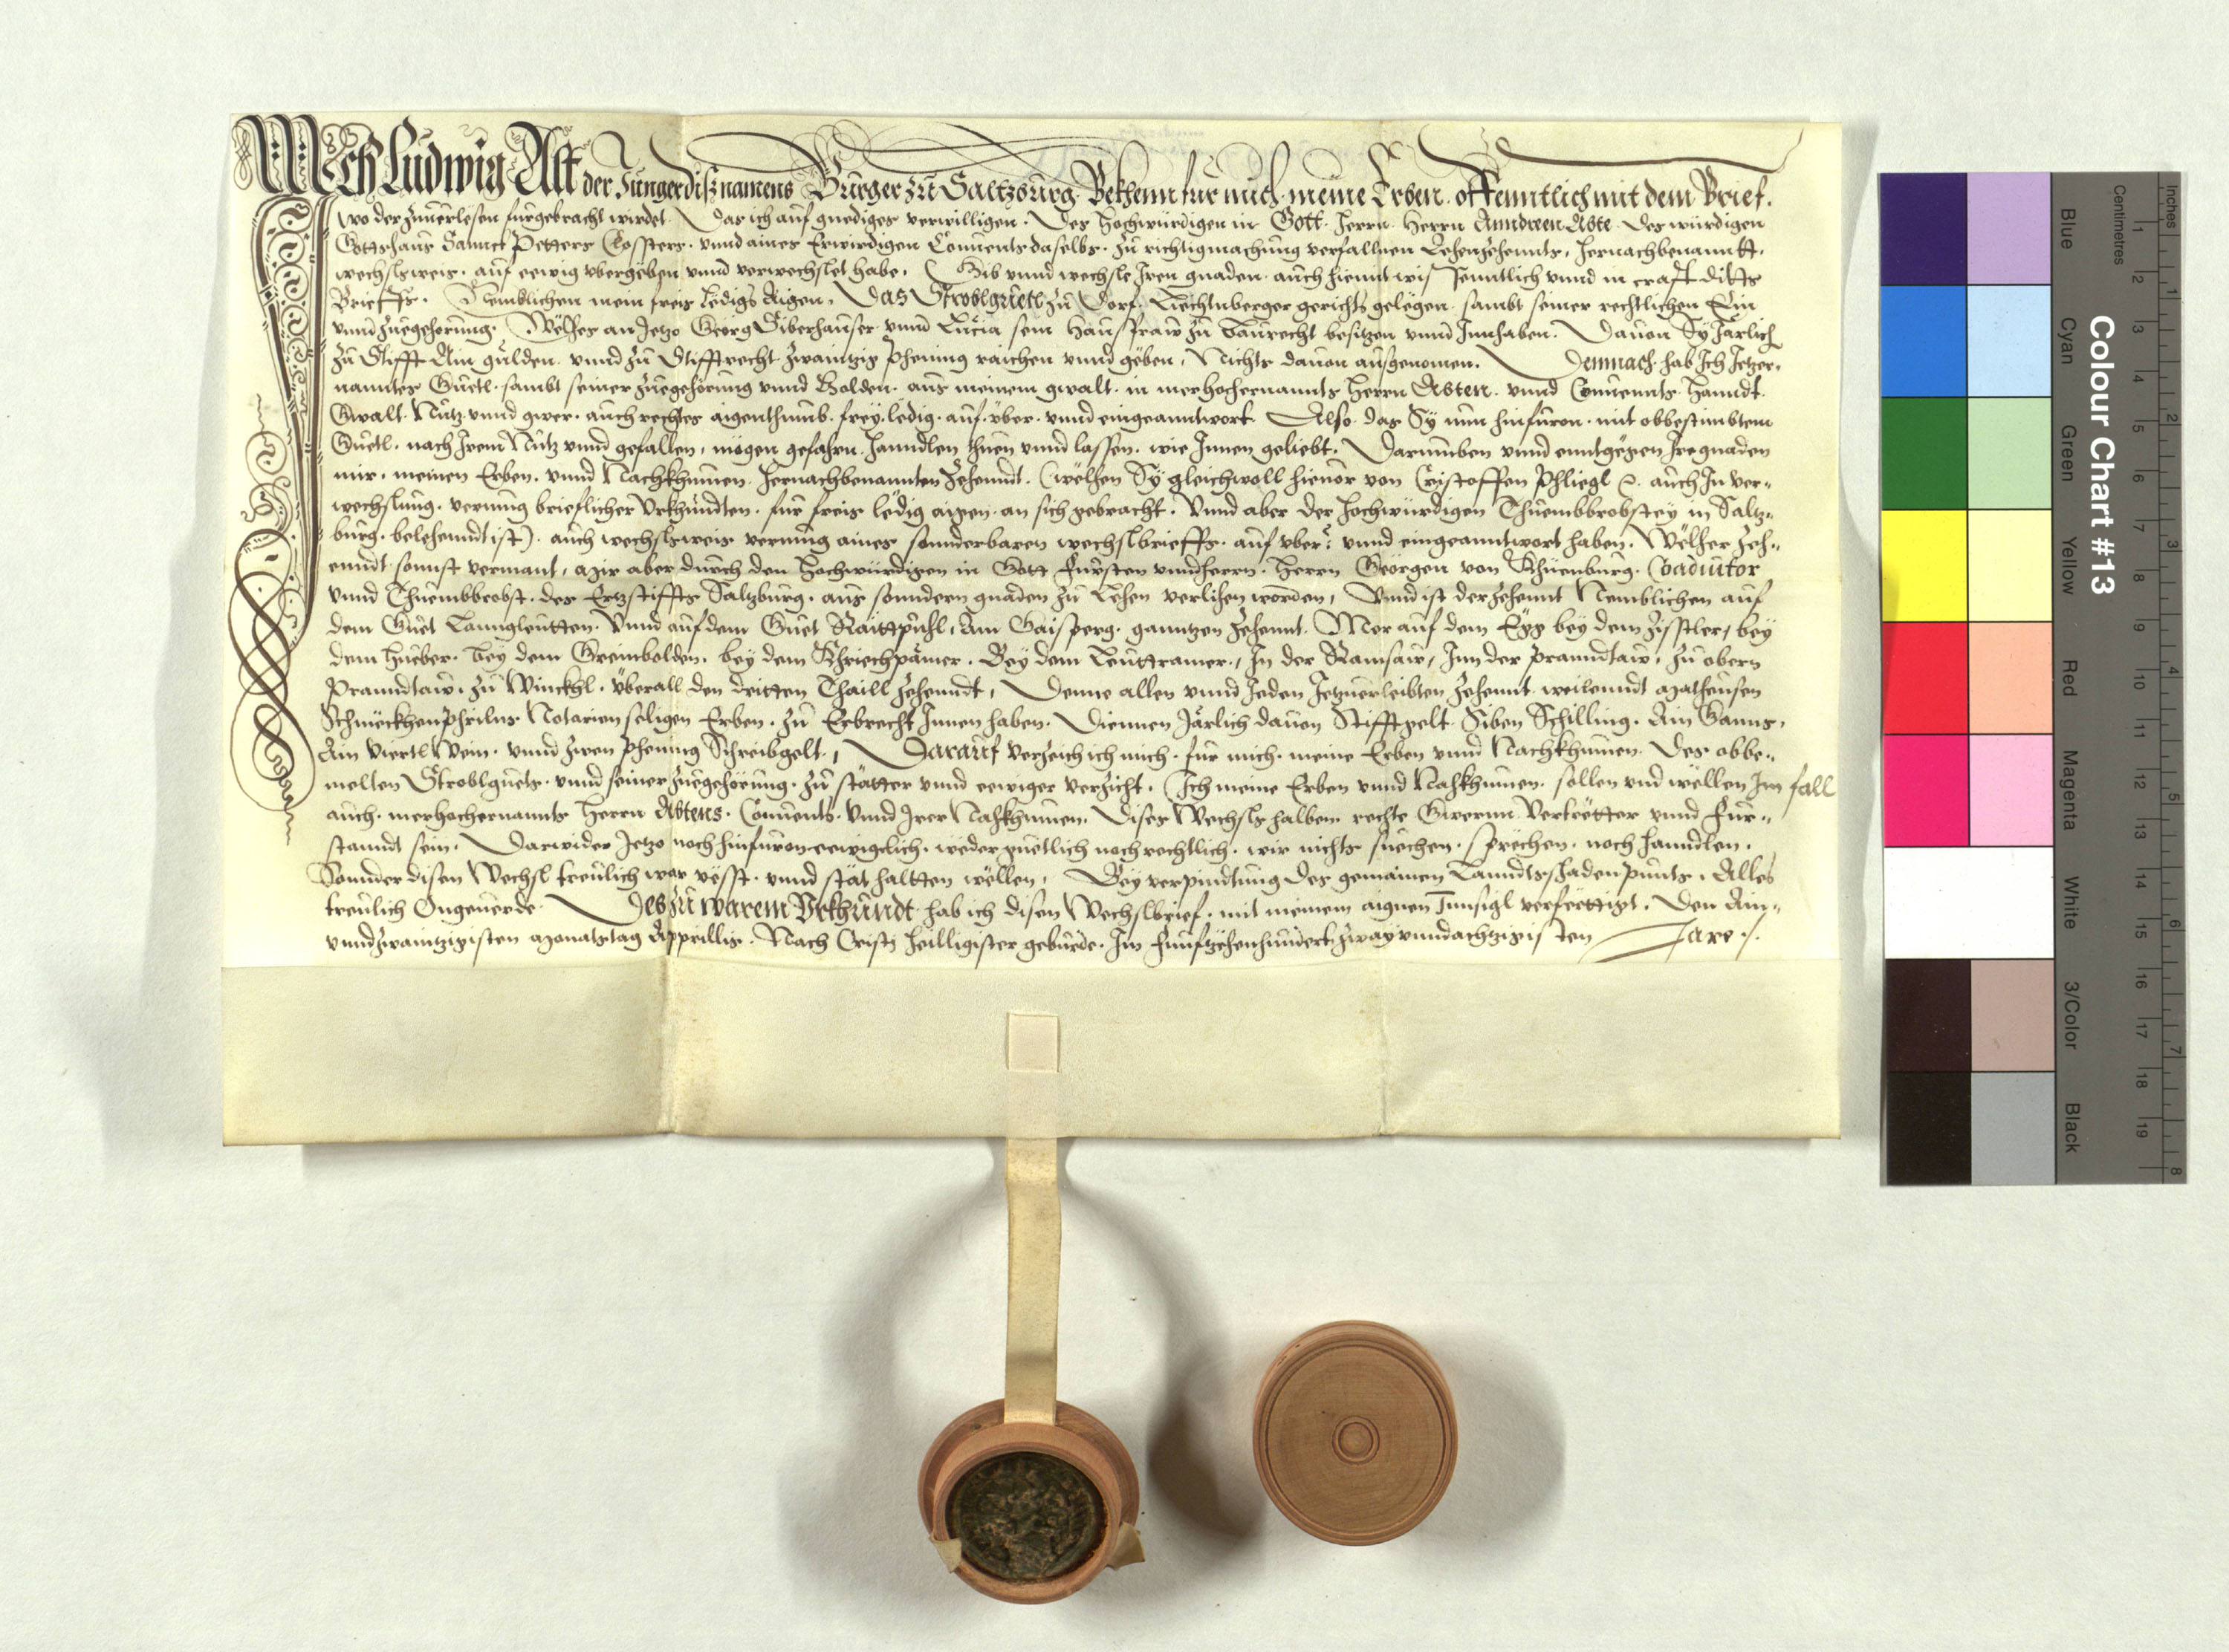 Ich Ludwig Allt der Junger diß namens Burger zu Saltzburg. Bekhenn für mich. meine Erben. offenntlich mit dem Brief.
wo der zuuerlesen fürgebracht wirdet. Das ich auf gnediges verwilligen. Des Hochwürdigen in Gott. Herrn. Herrn Anndreen Abte. des würdigen
Gottshaus Sannct Petters Closters. vnnd aines Erwirdigen Conuents daselbs. zu richtigmachung verfallnen Lehenzehennts, hernachbenannt.
wechslsweis. auf eewig vbergeben vnnd verwechslet habe. Gib vnnd wechsle Iren gnaden. auch hiemit wissenntlich vnnd in craft ditz
Brieffs. Nemblichen mein freis ledigs Aigen. Das Stroblguetl zu Dorf. Liechtnberger gerichts gelegen. sambt seiner rechtlichen Ein
vnnd zuegehorung. Welches an Jetzo Georg Siberhauser vnnd Lucia sein Hausfraw zu Baurecht besitzen vnnd Innhaben. Dauon Sy Järlich
zu Stifft Ain gulden. vnnd zu Stifftrecht zwaintzig Phening raichen vnnd geben, Nichts dauon ausgenomen. Demnach hab Ich Jetzer-
nanntes Guetl. sambt seiner zuegehörung vnnd Holden. aus meinem gwalt. in merhochernannts Herrn Abten. vnnd Conuennts. Hanndt.
Gwalt. Nutz vnnd gwer. auch rechtes aigenthumb. frey. ledig. auf. vber. vnnd eingeanntwort. Also das Sy nun hinfuron. mit obbestimbtem
Guetl. nach Irem Nutz vnnd gefallen, mögen gefahrn. hanndlen thuen vnnd lassen. wie Innen geliebt. Darumben vnnd enntgegen Ire gnaden
mir. meinen Erben. vnnd Nachkhumen. hernachbenannten Zehennt. (welhen Sy gleichwoll hieuor von Cristoffen Phliegl &. auch In ver-
wechslung. vermug brieflicher Vrkhundten. für freis ledig aigen. an sich gebracht. Vnnd aber der hochwürdigen Thuembbrobstey in Saltz-
burg. belehenndt ist). auch wechslsweis vermug aines sonnderbaren wechslbrieffs. auf vber. vnnd eingeanntwort haben. Wölher Zeh-
enndt sonnst vermant, Mir aber durch den Hochwürdigen in Gott Fürsten vnnd Herrn. Herrn Georgen von Khuenburg. Coadiutor
vnnd Thuembbrobst. des Ertzstiffts Saltzburg. aus sonndern gnaden zu Lehen verlihen worden, Vnnd ist der Zehennt Nemblichen auf
dem Guet Lanngleutten. Vnnd auf dem Guet Raittpichl, Am Gaisperg. ganntzen Zehennt. Mer auf dem Egg bey dem Zisstler, bey
dem Hueber. bey dem Greimbolden. bey dem Khriechpämer. Bey dem Leuttramer, In der Ramsaw, Inn der pranndtaw, zu obern
Pranndtaw. zu Winckhl. überall den dritten Thaill Zehenndt, Denne allen vnnd Jeden Jetzuerleibten Zehennt weilenndt Matheusen
Schmeckhenphrilns Notarien seligen Erben. zu Erbrecht Innen haben. Diennen Järlich dauon Stifftgelt. Siben Schilling. Ain Ganns,
Ain Viertl Wein. vnnd zwen phening Schreibgelt, Darauf verzeich ich mich. für mich. meine Erben vnnd Nachkhumen. Des obbe-
melten Stroblguets. vnnd seiner zuegehörung. zu stätter vnnd eewiger verzicht. Ich meine Erben vnnd Nachkhumen. sollen vnd wellen Im fall
auch. merhochernannts Herrn Abtens. Conuents. Vnnd Irer Nachkhumen. Dises Wechsls halben rechte Gwerrn. Vertretter vnnd Für-
stanndt sein. Darwider Jetzo noch hinfuron eewigclich. weder guetlich noch rechtlich. wir nichts suechen. sprechen. noch hanndlen.
Sonnder disen Wechsl treulich war vesst. vnnd stät haltten wellen, Bey verpindtung des gemainen Lanndtschadenpunts, Alles
treulich Ongeuerde. Des zu warem Vrkhundt hab ich disen Wechslbrief. mit meinem aignen Innsigl verferttigt. Den Ain-
vnndzwaintzigisten Monatstag Apprillis. Nach Cristj heilligister geburde. Im Funftzehenhundert zway vnndachtzigisten Jare ./.
Colour Chart #13
Blue
Cyan
Green
Yellow
Red
Magenta
White
3/Color
Black
Centimetres
1 2 3 4 5 6 7 8 9 10 11 12 13 14 15 16 17 18 19
Inches
1 2 3 4 5 6 7 8